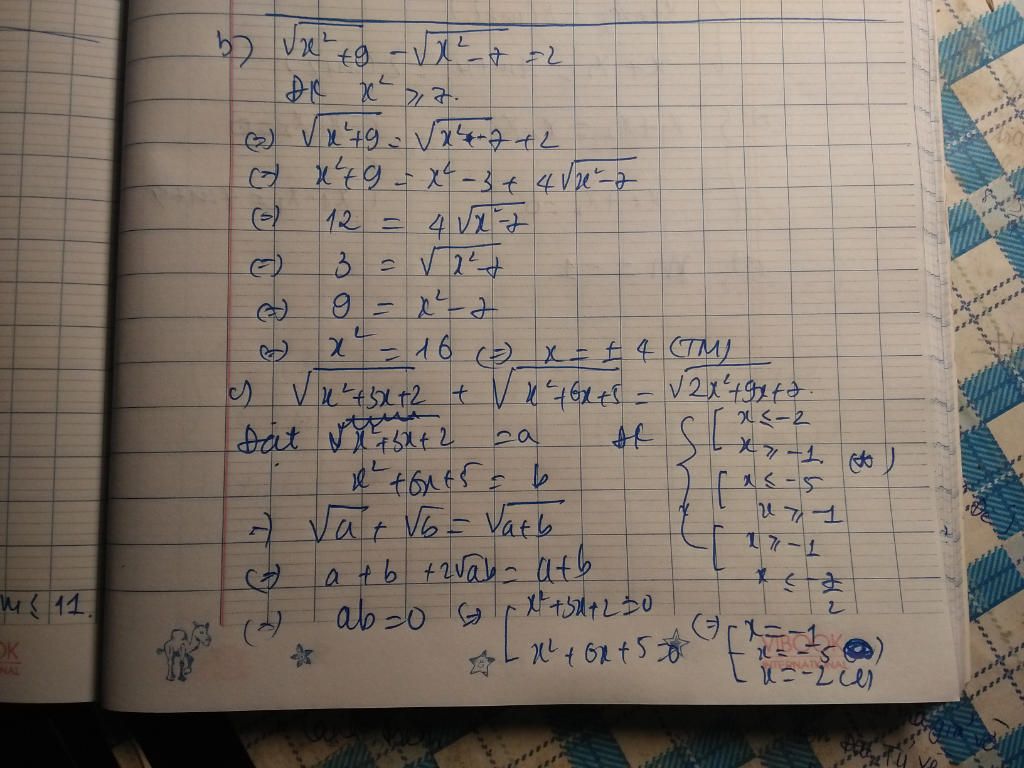 b) √(x²+9) - √(x²-7) = 2
ĐK x² ≥ 7.
(=) √(x²+9) = √(x²-7) + 2
(=) x²+9 = x²-3 + 4√(x²-7)
(=) 12 = 4√(x²-7)
(=) 3 = √(x²-7)
(=) 9 = x²-7
(=) x² = 16 (=) x = ± 4 (TM)
c) √(x²+3x+2) + √(x²+6x+5) = √(2x²+9x+7).
Đặt x²+3x+2 = a ĐK { [ x ≤ -2
x ≥ -1 (*)
x²+6x+5 = b [ x ≤ -5
x ≥ -1
=) √a + √b = √(a+b) [ x ≥ -1
x ≤ -7/2
(=) a + b + 2√ab = a+b
(=) ab = 0 (=) [ x²+3x+2 = 0 (=) [ x = -1
x²+6x+5 = 0 x = -5
x = -2 (l)
m ≤ 11.
OK
NAL
VIBOOK
INTERNATIONAL